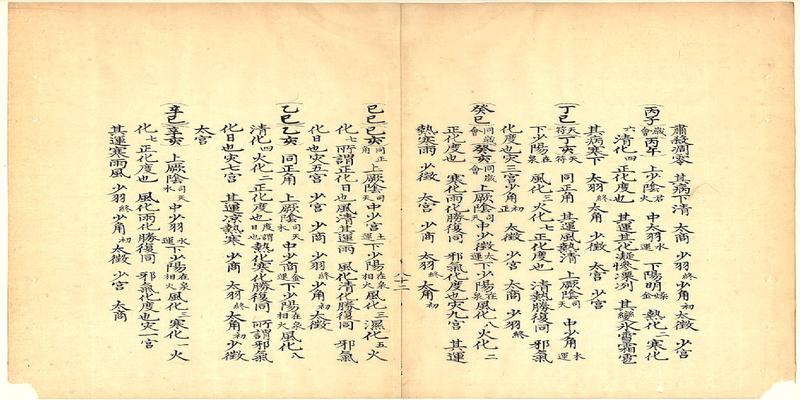 肅殺凋零 其病下清 太商 少羽終 少角初 太徵 少宮
丙子歲會 丙午 上少陰君火 中太羽水運 下陽明燥金 熱化二 寒化
六 清化四 正化度也 其運其化凝慘凓冽 其變氷雪霜雹
其病寒下 太羽終 太角初 少徵 太宮 少商
丁巳天符 丁亥天符 同正角 其運風熱清 上厥陰司天 中少角木運
下少陽在泉 風化三 火化七 正化度也 清熱勝復同 邪氣
化度也灾三宮 少角初正 太徵 少宮 太商 少羽終
癸巳同歲會 癸亥同歲會 上厥陰司天 中少徵火運 下少陽在泉 風化八 火化二
正化度也 寒化雨化勝復同 邪氣化度也灾九宮 其運
熱寒雨 少徵 太宮 少商 太羽終 太角初
八十二
己巳 己亥同正角 上厥陰司天 中少宮土運 下少陽在泉相火 風化三 濕化五 火
化七 所謂正化日也 風清其運雨 風化清化勝復同 邪氣
化日也灾五宮 少宮 太商 少羽終 少角初 太徵
乙巳 乙亥 同正角 上厥陰司天木 中少商金運 下少陽在泉相火 風化八
清化四 火化二 正化度也度謂日也 熱化寒化勝復同 所謂邪氣
化日也灾七宮 其運涼熱寒 少商 太羽終 太角初 少徵
太宮
辛巳 辛亥 上厥陰司天木 中少羽水運 下少陽在泉相火 風化三 寒化一 火
化七 正化度也 風化雨化勝復同 邪氣化度也灾一宮
其運寒雨風 少羽終 少角初 太徵 少宮 太商